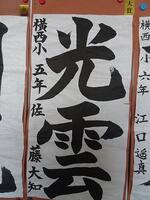 光雲
横西小五年佐藤大知
横西小六年江口